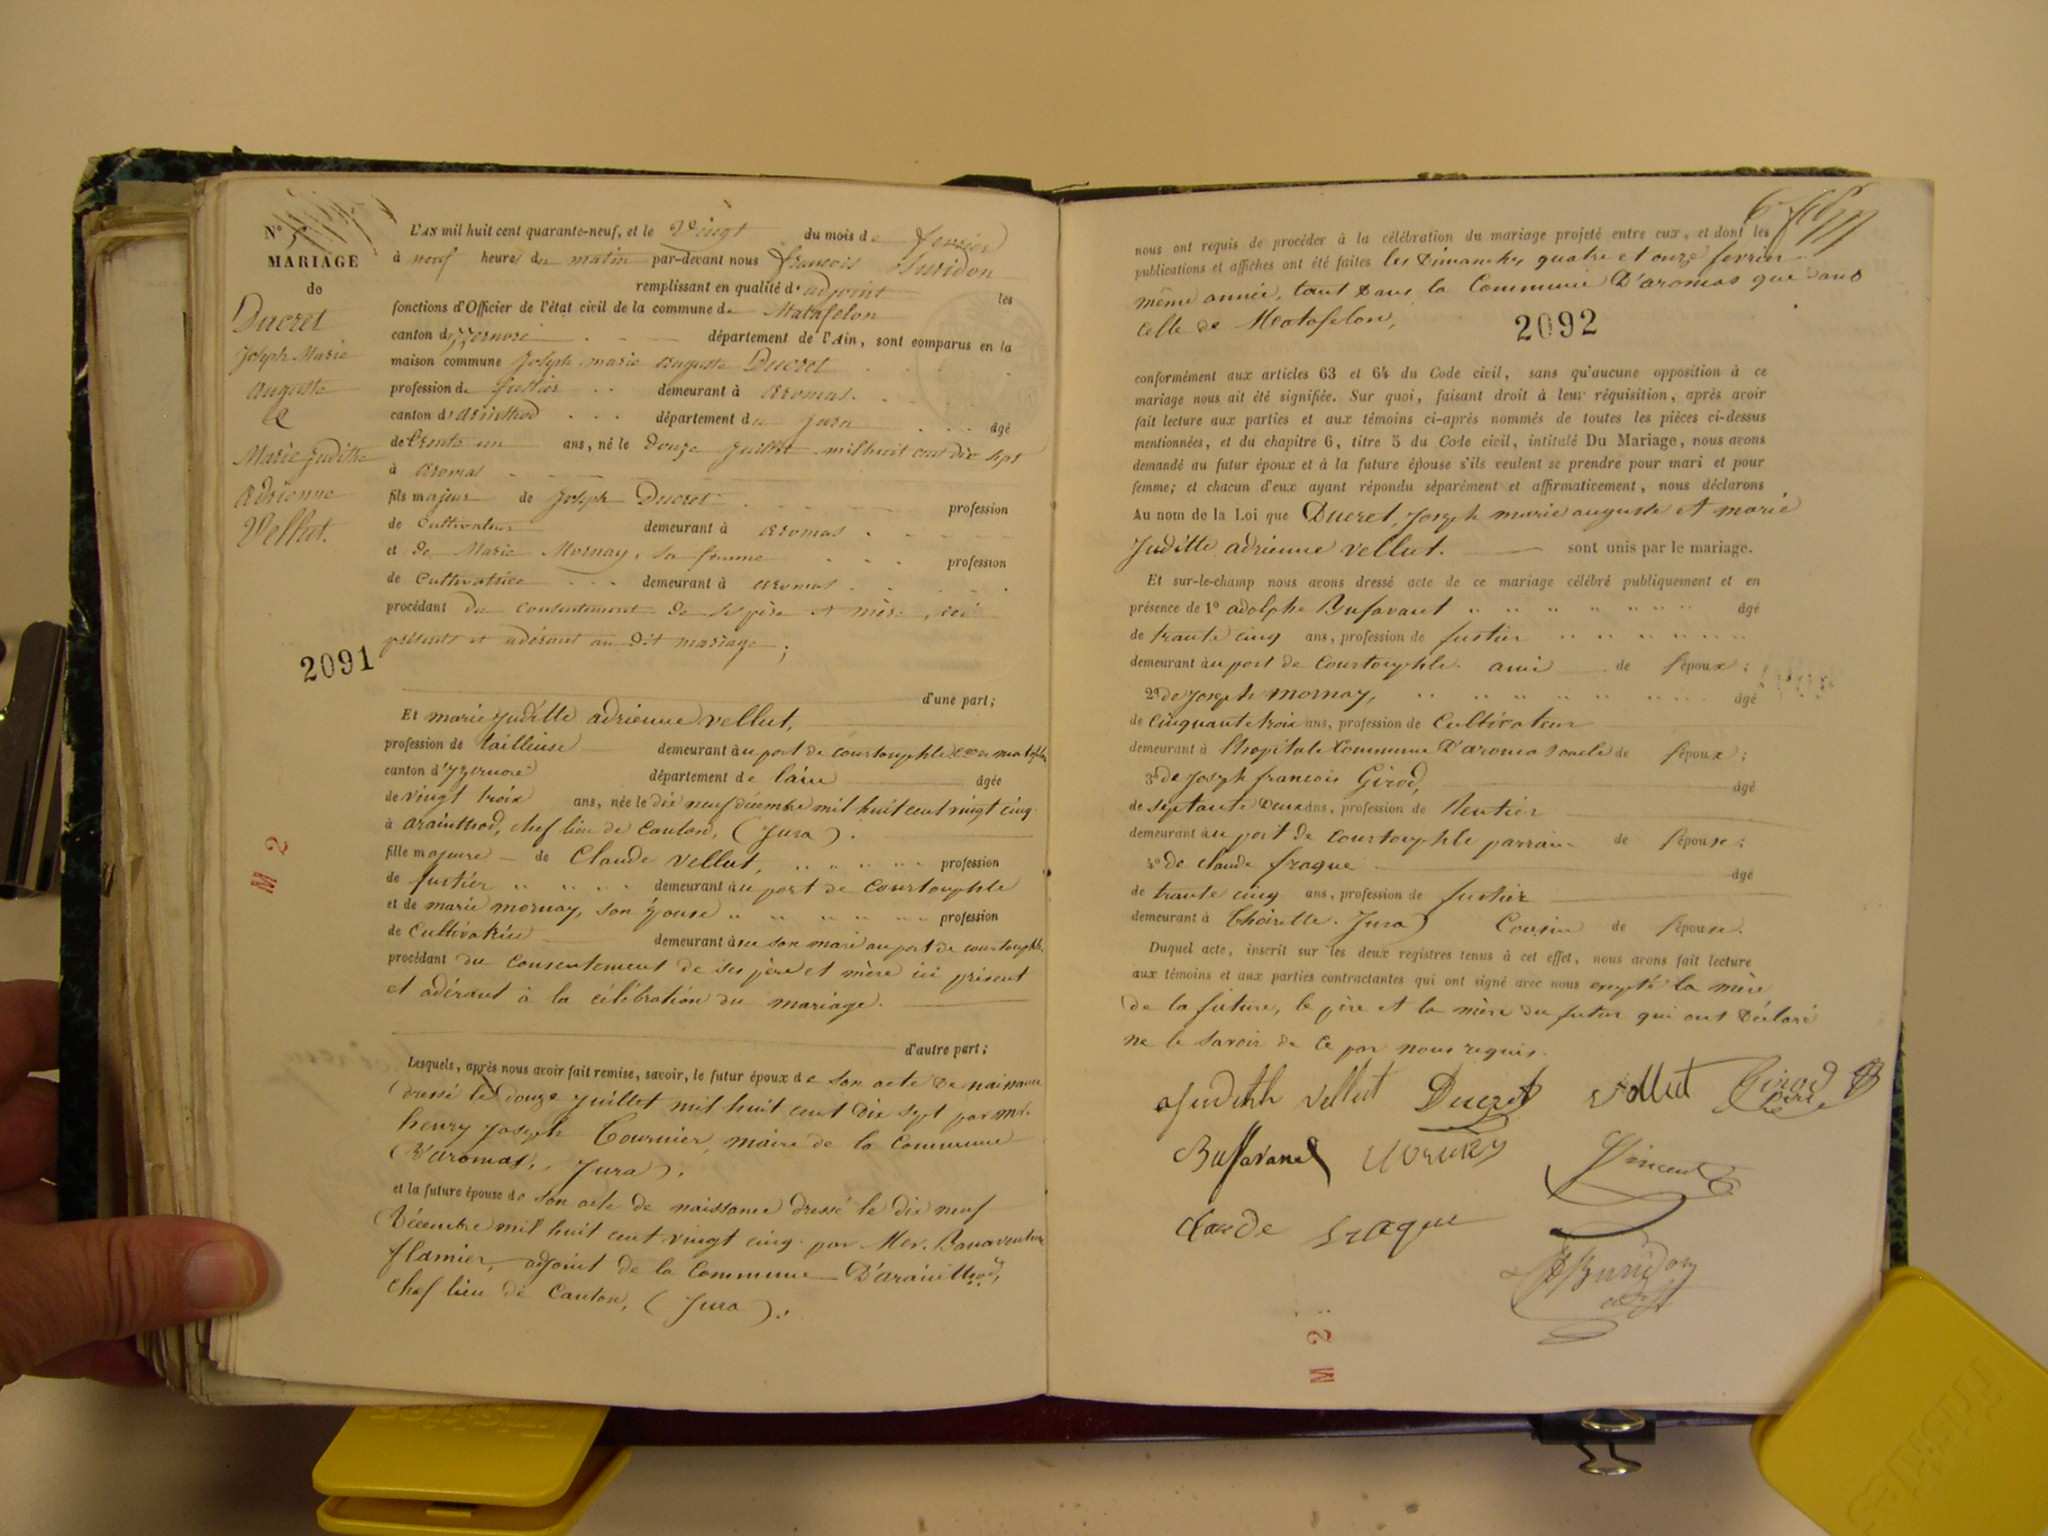 N° 5
MARIAGE
de
Ducret
Joseph Marie
auguste
&
Marie juditte
adrienne
Vellut.
2091
M 2
L'AN mil huit cent quarante-neuf, et le Vingt du mois de fevrier
à neuf heures du matin par-devant nous françois Buridon
remplissant en qualité d'adjoint les
fonctions d'Officier de l'état civil de la commune de Matafelon
canton d'yzernore département de l'Ain, sont comparus en la
maison commune Joseph marie auguste Ducret
profession de fustier demeurant à aromas.
canton d'arinthod département du jura âgé
de trente un ans, né le Douze juillet mil huit cent dix sept
à aromas
fils majeur de joseph Ducret profession
de Cultivateur demeurant à aromas
et de Marie Mornay, sa femme profession
de Cultivatrice demeurant à aromas
procédant du consentement de ses père et mère, ici
présents et adérant au dit mariage;
d'une part;
Et marie juditte adrienne vellut,
profession de tailleuse demeurant à au port de courtouphle Cne de matafelon
canton d'yzernore département de l'ain âgée
de vingt trois ans, née le dix neuf décembre mil huit cent vingt cinq
à arainthod, chef lieu de canton, (jura).
fille majeure de Claude vellut, profession
de fustier demeurant à au port de Courtouphle
et de marie mornay, son épouse profession
de Cultivatrice demeurant à au son mari au port de courtouphle
procédant du consentement de ses père et mère ici présent
et adérant à la célébration du mariage.
d'autre part;
Lesquels, après nous avoir fait remise, savoir, le futur époux de son acte de naissance
dressé le douze juillet mil huit cent dix sept par mr.
henry joseph Tournier, maire de la Commune
D'aromas, jura).
et la future épouse de son acte de naissance dressé le dix neuf
Décembre mil huit cent vingt cinq par Mer. Bonaventure
flamier, adjoint de la Commune D'arainthod,
chef lieu de Canton, (jura).
nous ont requis de procéder à la célébration du mariage projeté entre eux, et dont les
publications et affiches ont été faites les Dimanches quatre et onze fevrier
même année, tant dans la Commune D'aromas que dans
celle de Matafelon,
2092
conformément aux articles 63 et 64 du Code civil, sans qu'aucune opposition à ce
mariage nous ait été signifiée. Sur quoi, faisant droit à leur réquisition, après avoir
fait lecture aux parties et aux témoins ci-après nommés de toutes les pièces ci-dessus
mentionnées, et du chapitre 6, titre 5 du Code civil, intitulé Du Mariage, nous avons
demandé au futur époux et à la future épouse s'ils veulent se prendre pour mari et pour
femme; et chacun d'eux ayant répondu séparément et affirmativement, nous déclarons
Au nom de la Loi que Ducret, joseph marie auguste et marie
juditte adrienne vellut. sont unis par le mariage.
Et sur-le-champ nous avons dressé acte de ce mariage célébré publiquement et en
présence de 1° adolphe Bufavant âgé
de trante cinq ans, profession de fustier
demeurant à au port de Courtouphle ami de l'époux;
2° de joseph mornay, âgé
de cinquante trois ans, profession de Cultivateur
demeurant à lhopitale Commune D'aromas oncle de l'époux;
3° de joseph françois Girod, âgé
de septante deux ans, profession de Rentier
demeurant à au port de courtouphle parrain de l'épouse;
4° de claude fraque âgé
de trante cinq ans, profession de fustier
demeurant à Thoirette. Jura) Cousin de l'épouse.
Duquel acte, inscrit sur les deux registres tenus à cet effet, nous avons fait lecture
aux témoins et aux parties contractantes qui ont signé avec nous excepté la mère
de la future, le père et la mère du futur qui ont Déclaré
ne le savoir de ce par nous requis.
judith vellut Ducret Vellut Girod
Buffavand Mornay Vincent
claude fraque
Buridon
adjt
M 2